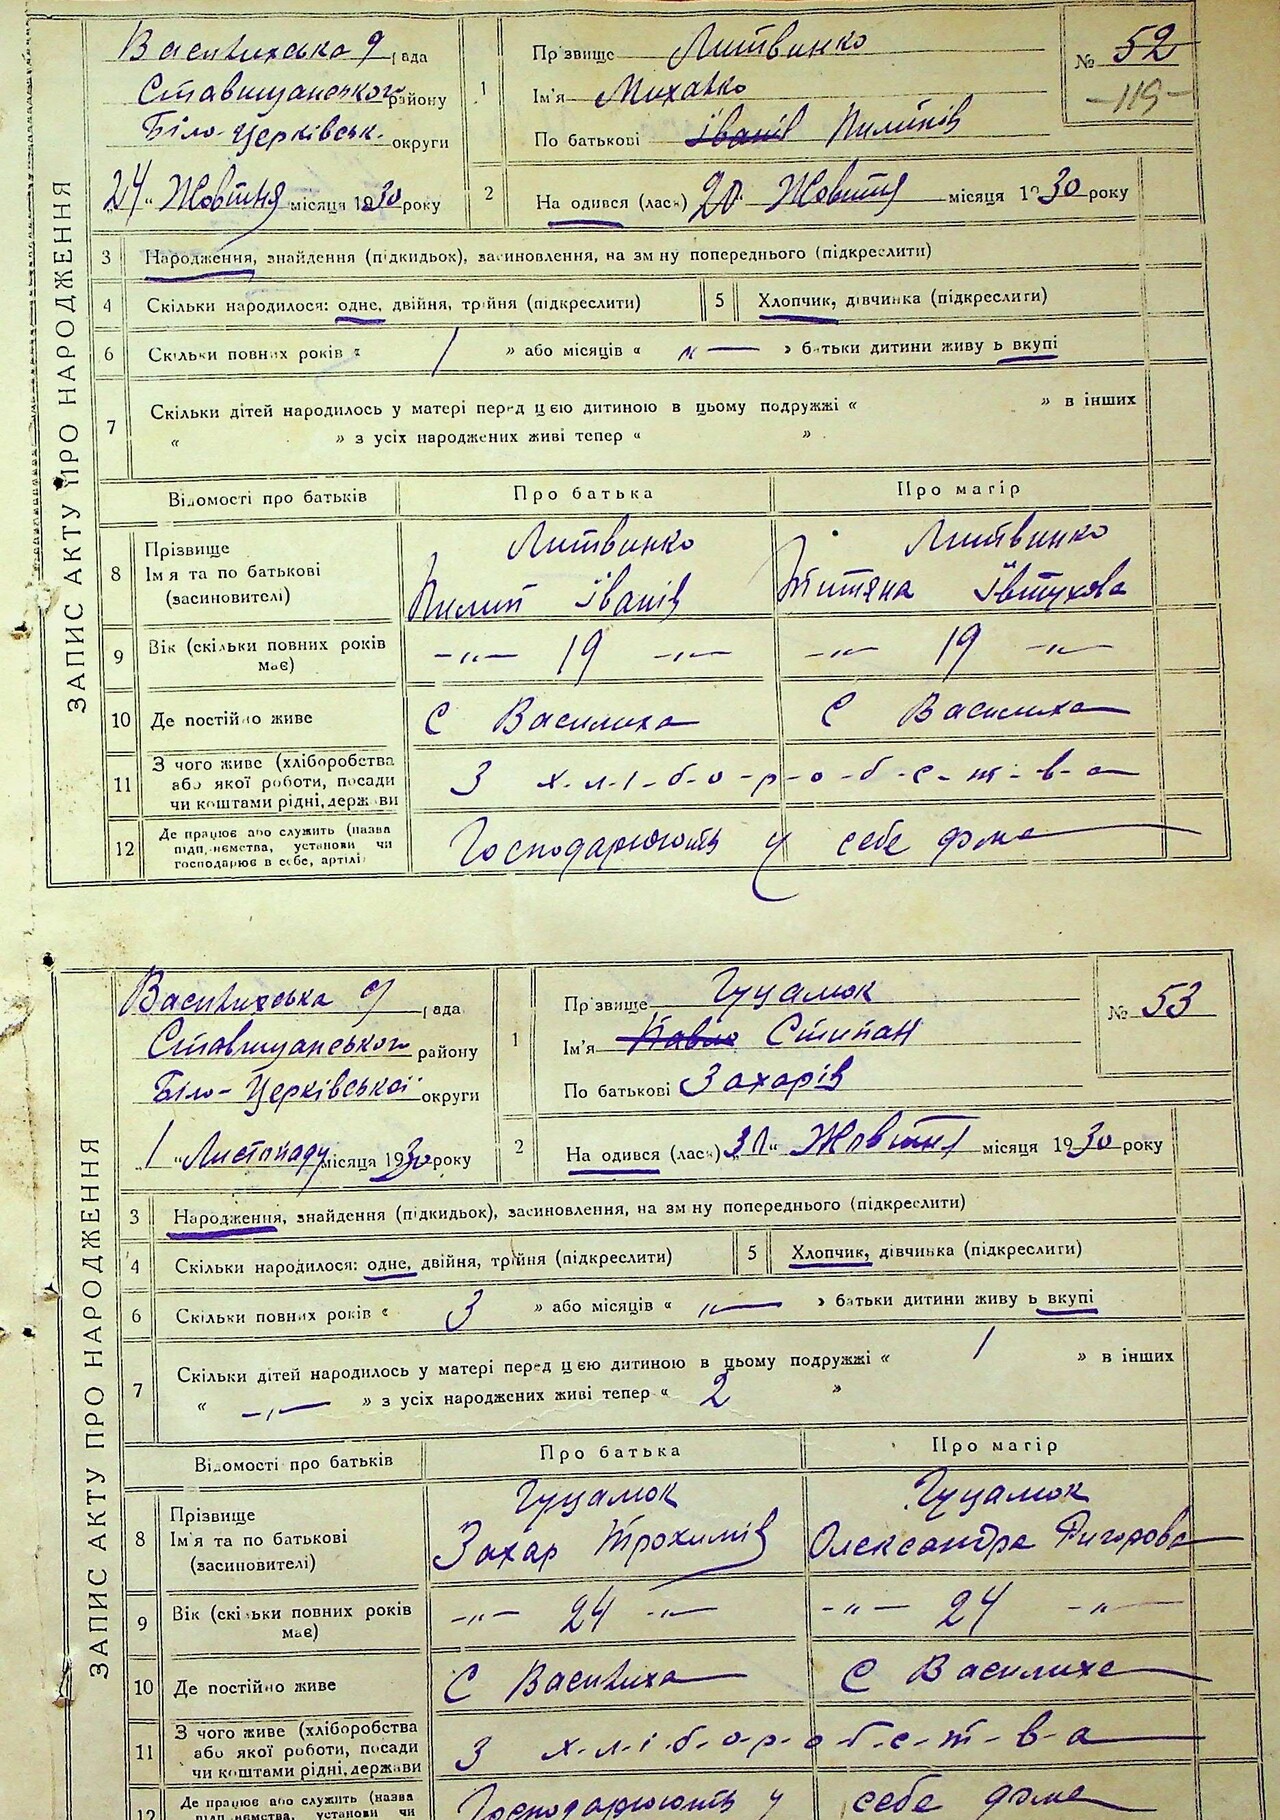 ЗАПИС АКТУ ПРО НАРОДЖЕННЯ
Василихська рада
Ставищанського району
Біло-Церківськ. округи
"24" Жовтня місяця 1930 року
1
Прізвище Литвинко
Ім'я Михалко
По батькові Іванів Пилипів
№ 52
-119-
2
На одився (лась) 20 Жовтня місяця 1930 року
3 Народження, знайдення (підкидьок), засиновлення, на зм ну попереднього (підкреслити)
4 Скільки народилося: одне, двійня, трійня (підкреслити)
5 Хлопчик, дівчинка (підкреслити)
6 Скільки повних років « 1 » або місяців « „— » батьки дитини живу ь вкупі
7 Скільки дітей народилось у матері перед цією дитиною в цьому подружжі « » в інших
« » з усіх народжених живі тепер « »
Відомості про батьків Про батька Про матір
8 Прізвище Литвинко Литвинко
Ім'я та по батькові
(засиновителі) Пилип Іванів Титяна Івтухова
9 Вік (скільки повних років має) -„- 19 -„- -„- 19 -„-
10 Де постійно живе С Василиха С Василиха
11 З чого живе (хліборобства
або якої роботи, посади
чи коштами рідні, держ ви З х-л-і-б-о-р-о-б-с-т-в-а
12 Де працює або служить (назва
підп иємства, установи чи
господарює в себе, артілі) Господарюють у себе дома
ЗАПИС АКТУ ПРО НАРОДЖЕННЯ
Василихська рада
Ставищанського району
Біло-Церківської округи
"1" Листопаду місяця 1930 року
1
Прізвище Гуцалюк
Ім'я Павло Стипан
По батькові Захарів
№ 53
2
На одився (лась) „31" Жовтня місяця 1930 року
3 Народження, знайдення (підкидьок), засиновлення, на зм ну попереднього (підкреслити)
4 Скільки народилося: одне, двійня, трійня (підкреслити)
5 Хлопчик, дівчинка (підкреслити)
6 Скільки повних років « 3 » або місяців « „— » батьки дитини живу ь вкупі
7 Скільки дітей народилось у матері перед цією дитиною в цьому подружжі « 1 » в інших
« -„- » з усіх народжених живі тепер « 2 »
Відомості про батьків Про батька Про матір
8 Прізвище Гуцалюк Гуцалюк
Ім'я та по батькові
(засиновителі) Захар Трохимів Олександра Григорова
9 Вік (скільки повних років має) -„- 24 -„- -„- 24 -„-
10 Де постійно живе С Василиха С Василиха
11 З чого живе (хліборобства
або якої роботи, посади
чи коштами рідні, держави З х-л-і-б-о-р-о-б-с-т-в-а
12 Де працює або служить (назва
підп иємства, установи чи Господарюють у себе дома